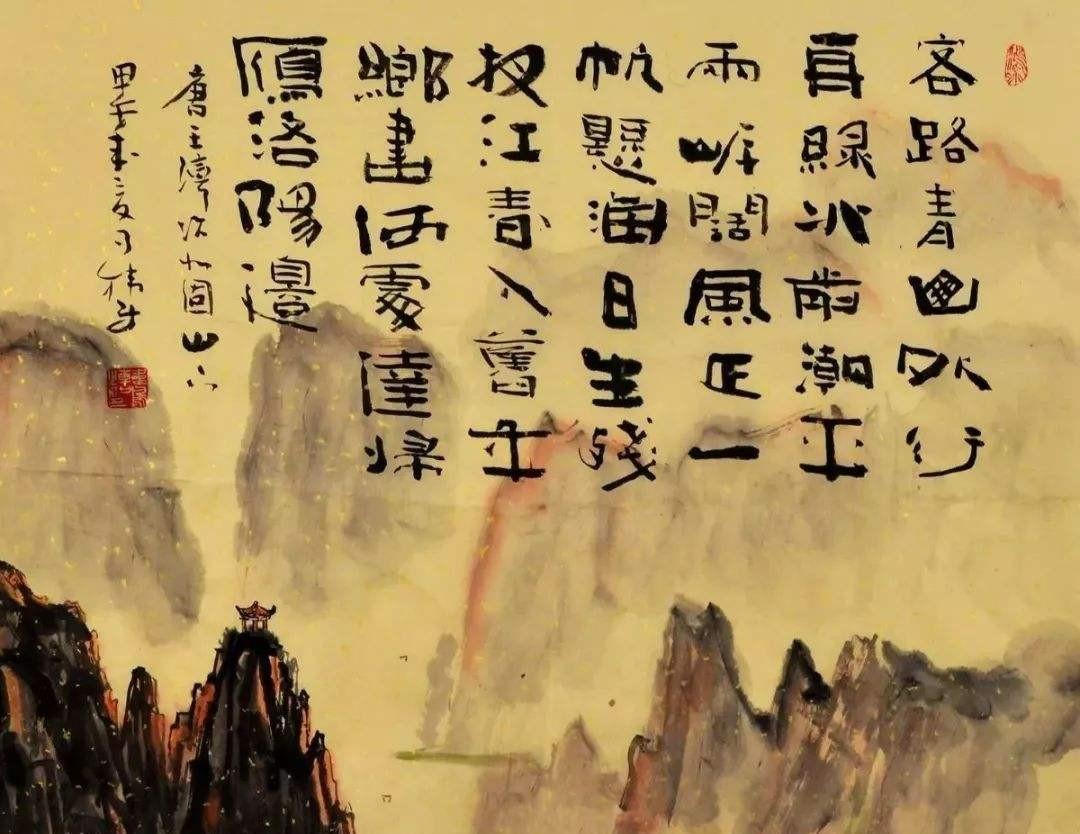 客路青山外行
舟綠水前潮平
兩岸闊風正一
帆懸海日生殘
夜江春入舊年
鄉書何處達歸
雁洛陽邊
唐王灣次北固山下
甲午